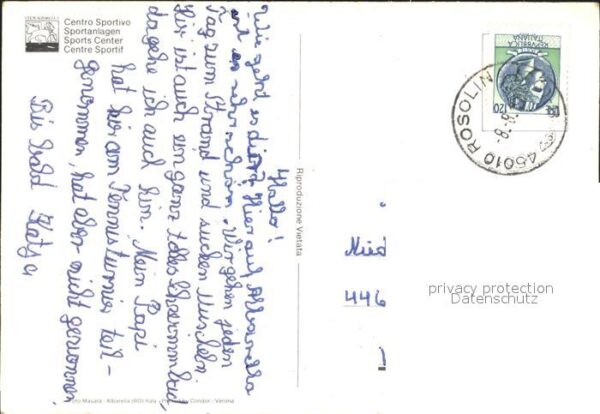 Centro Sportivo
Sportanlagen
Sports Center
Centre Sportif
Hallo!
Wie geht es dir? Hier auf Albarella
ist es sehr schön. Wir gehen jeden
Tag zum Strand und suchen Muscheln
Hier ist auch ein ganz tolles Schwimmbad,
da gehe ich auch hin. Mein Papi
hat hier am Tennisturnier teil-
genommen, hat aber nicht gewonnen.
Bis bald Katja
Riproduzione Vietata
Foto Masara - Albarella (RO) Italy - Verona
REPVBBLICA
ITALIANA
120
45010 ROSOLIN
-8.-8.
446
privacy protection
Datenschutz